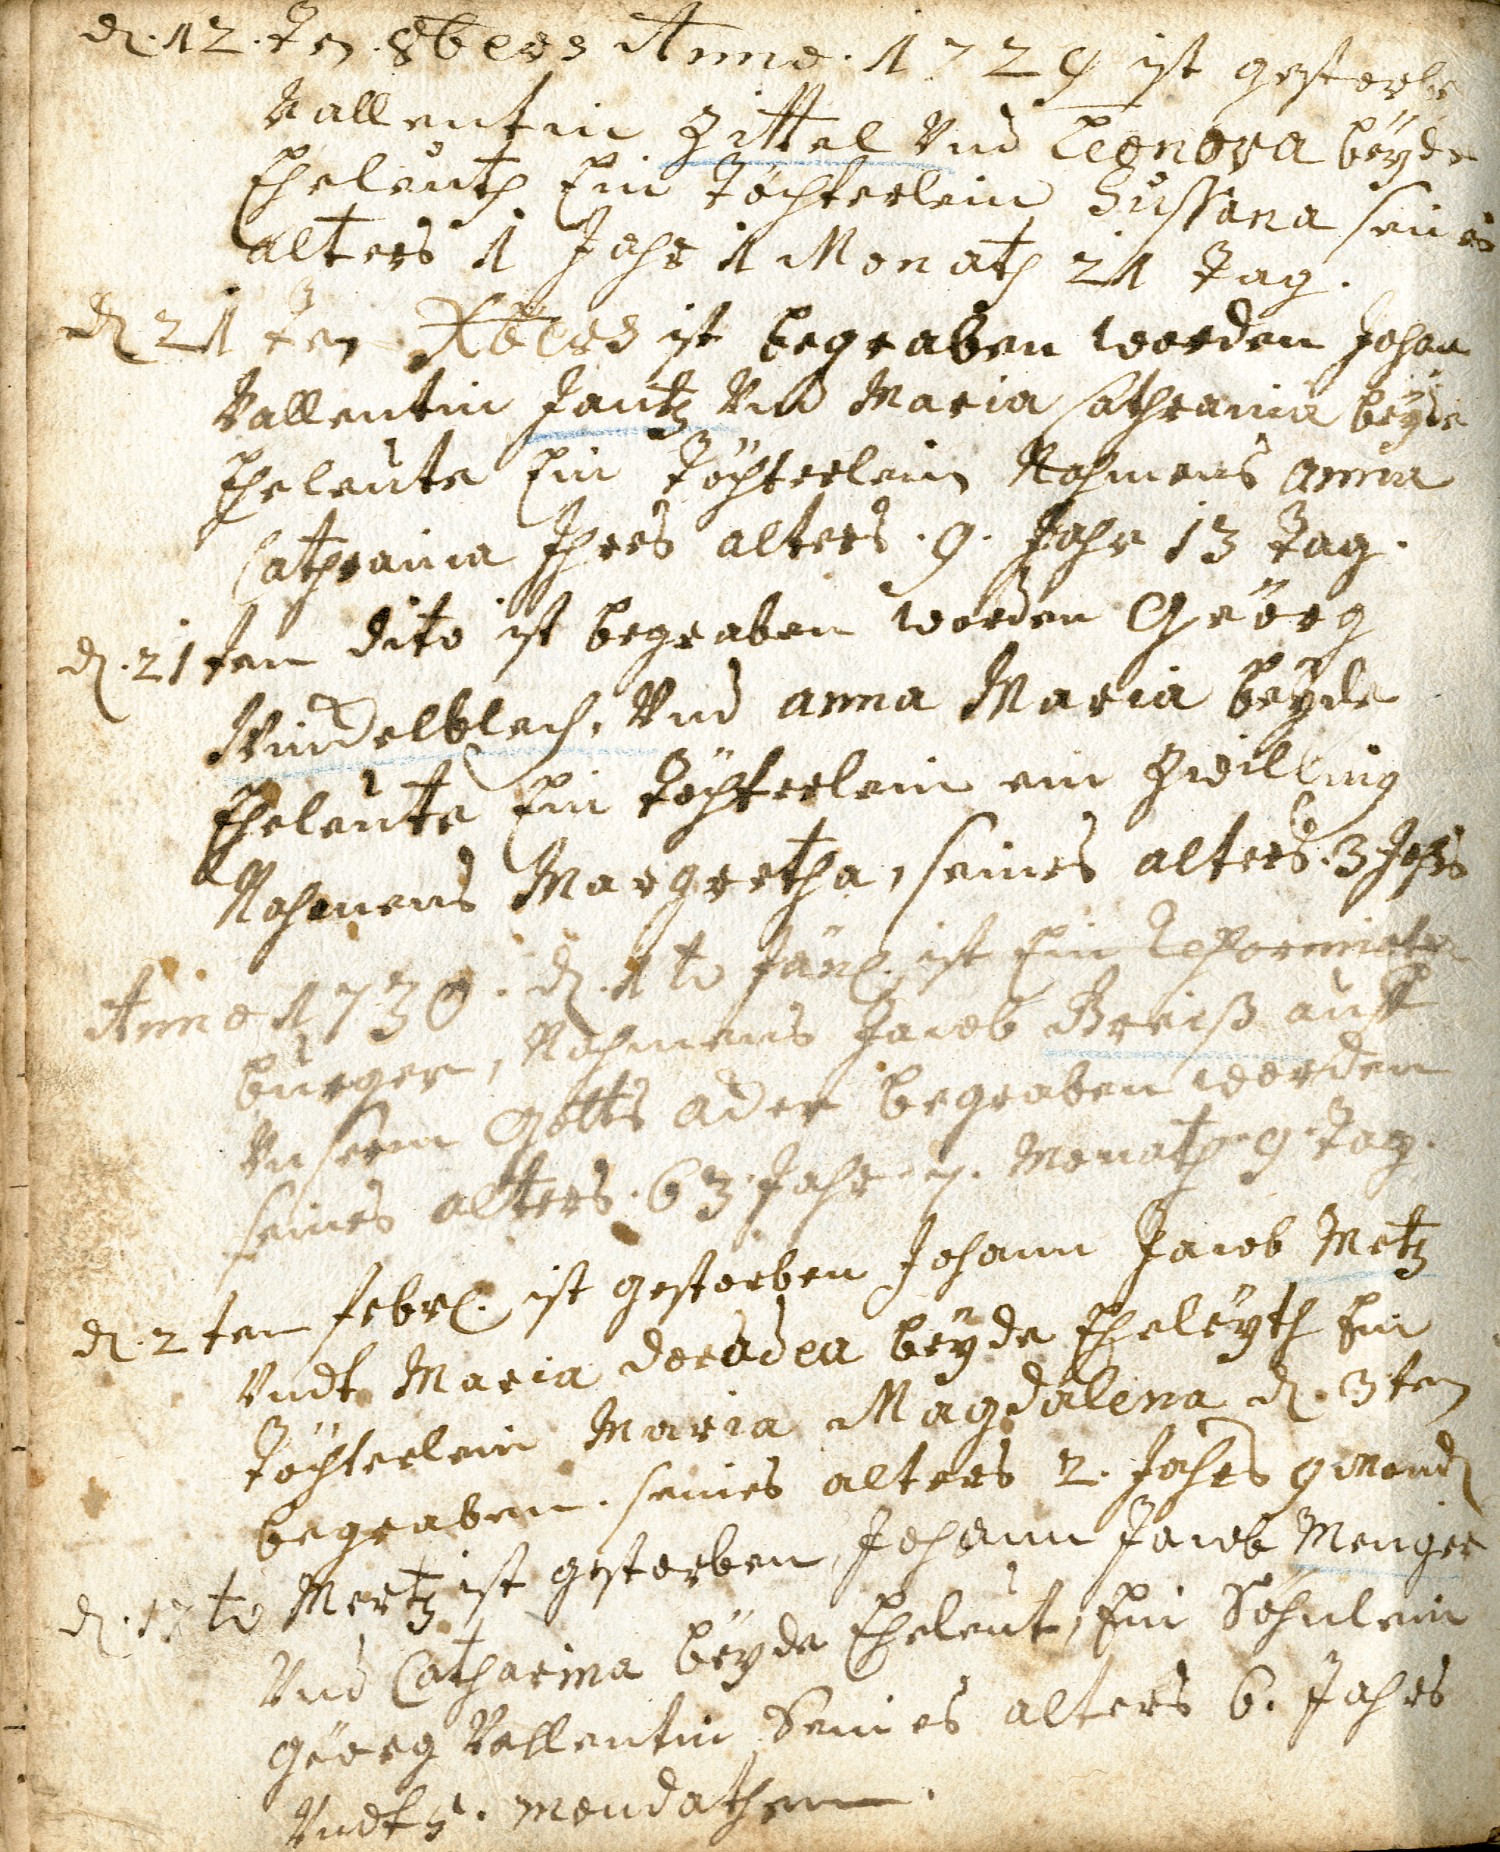 d. 12. ten 8bers Anno. 1729 ist gestorbe
Vallentin Zittel Vnd Leonora beyde
Eheleuth Ein Töchterlein Sussana seines
alters 1 Jahr 1 Monath 21 Tag.
d 21 ten Xbers ist begraben worden Johan
Vallentin Jantz Vnd Maria Cathrania beyde
Eheleute Ein Töchterlein Nahmens Anna
Cathrania Ihres alters. 9. Jahr 13 Tag.
d. 21 ten dito ist begraben worden Geörg
Windelblech, Vnd anna Maria beyde
Eheleute Ein Töchterlein ein Zwilling
Nahmens Margretha, seines alters. 3 Jahrs
Anno 1730. d. 1 to Jan. ist Ein Reformirter
burger, Nahmens Jacob Breiß auff
Vnserm Gotts acker begraben worden
seines alters. 63 Jahr 7. Monath 9 Tag.
d. 2 ten febr. ist gestorben Johann Jacob Metz
Vndt Maria doradea beyde Eheleyth Ein
Töchterlein Maria Magdalena d. 3 ten
begraben. seines alters 2. Jahrs 9 Mond
d. to Mertz ist gestorben, Johann Jacob Menger
Vnd Catharina beyde Eheleut, Ein Söhnlein
Geörg Vallentin Seines alters 6. Jahrs
Vndt 5. Mondathen.